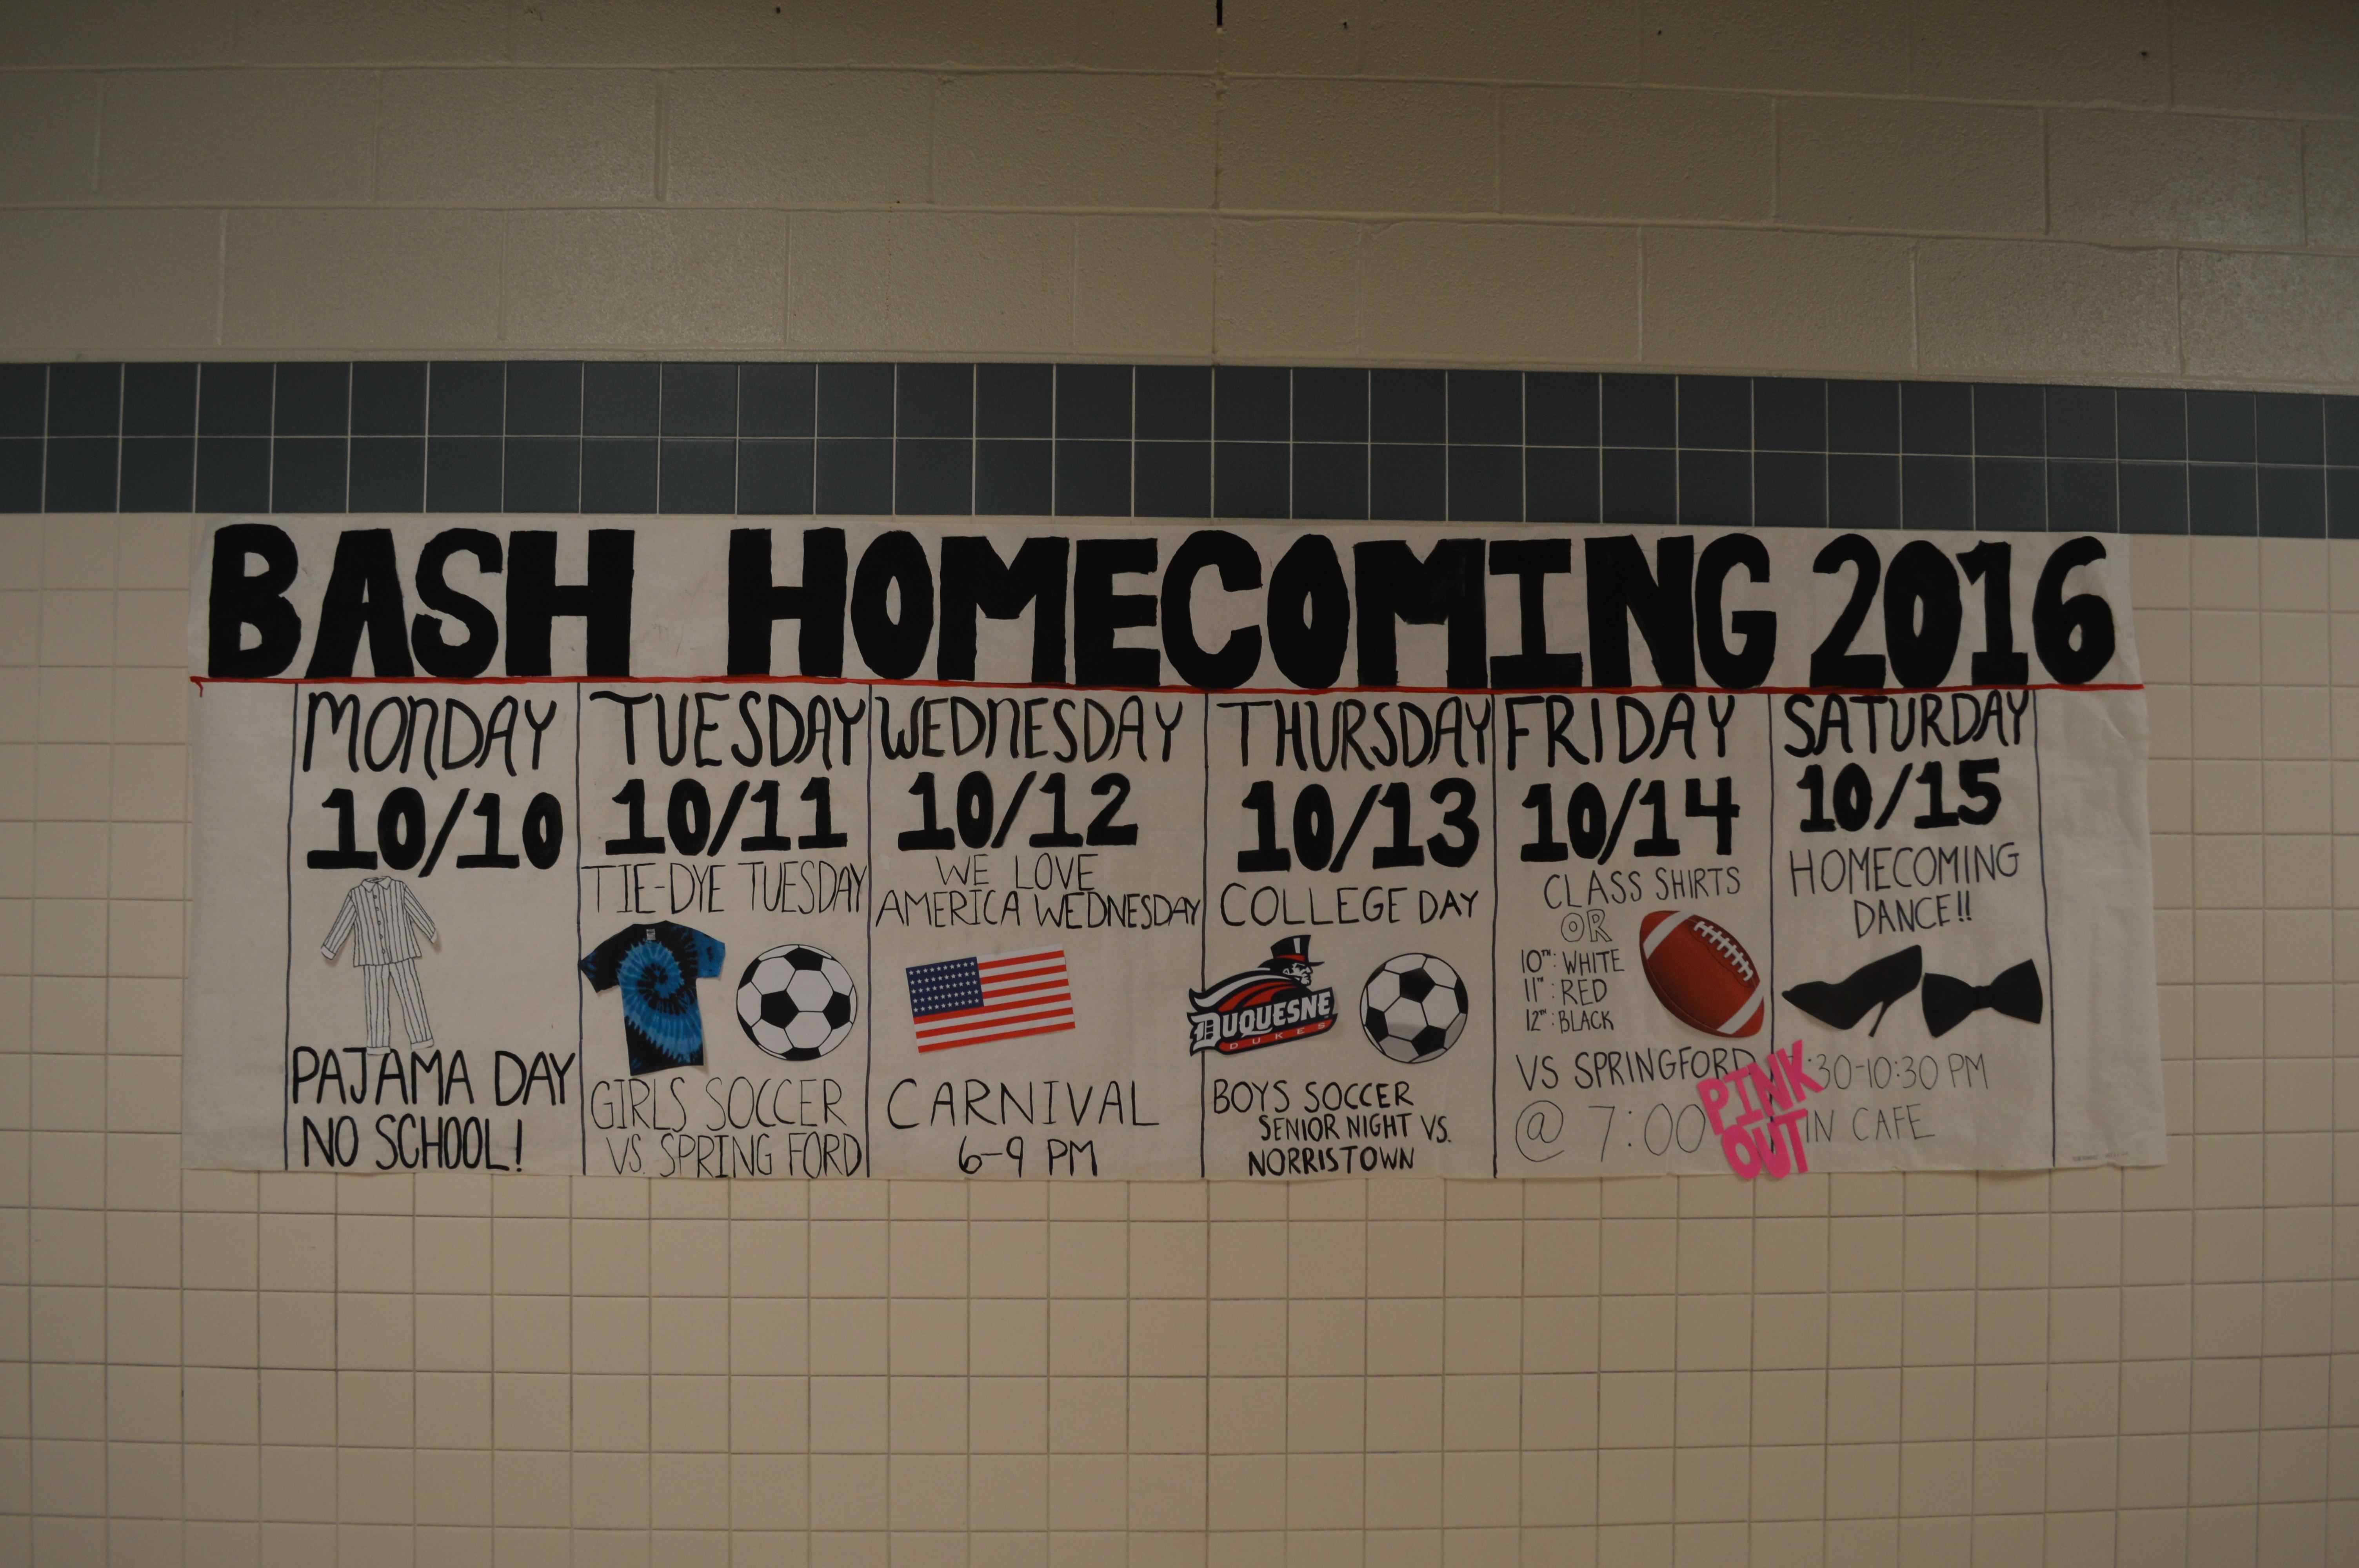 BASH HOMECOMING 2016
MONDAY
10/10
PAJAMA DAY
NO SCHOOL!
TUESDAY
10/11
TIE-DYE TUESDAY
GIRLS SOCCER
VS. SPRING FORD
WEDNESDAY
10/12
WE LOVE
AMERICA WEDNESDAY
CARNIVAL
6-9 PM
THURSDAY
10/13
COLLEGE DAY
DUQUESNE
DUKES
BOYS SOCCER
SENIOR NIGHT VS.
NORRISTOWN
FRIDAY
10/14
CLASS SHIRTS
OR
10TH: WHITE
11TH: RED
12TH: BLACK
VS SPRINGFORD
@ 7:00
PINK
OUT
SATURDAY
10/15
HOMECOMING
DANCE!!
:30-10:30 PM
IN CAFE